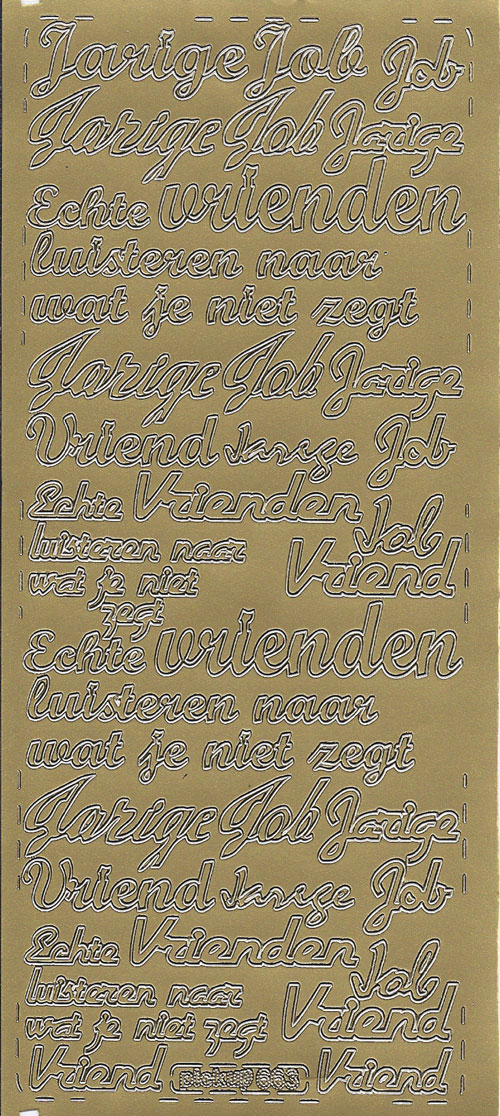 Jarige Job Job
Jarige Job Jarige
Echte vrienden
luisteren naar
wat je niet zegt
Jarige Job Jarige
Vriend Jarige Job
Echte Vrienden Job
luisteren naar Vriend
wat je niet
zegt
Echte vrienden
luisteren naar
wat je niet zegt
Jarige Job Jarige
Vriend Jarige Job
Echte Vrienden Job
luisteren naar Vriend
wat je niet zegt
Vriend Vriend